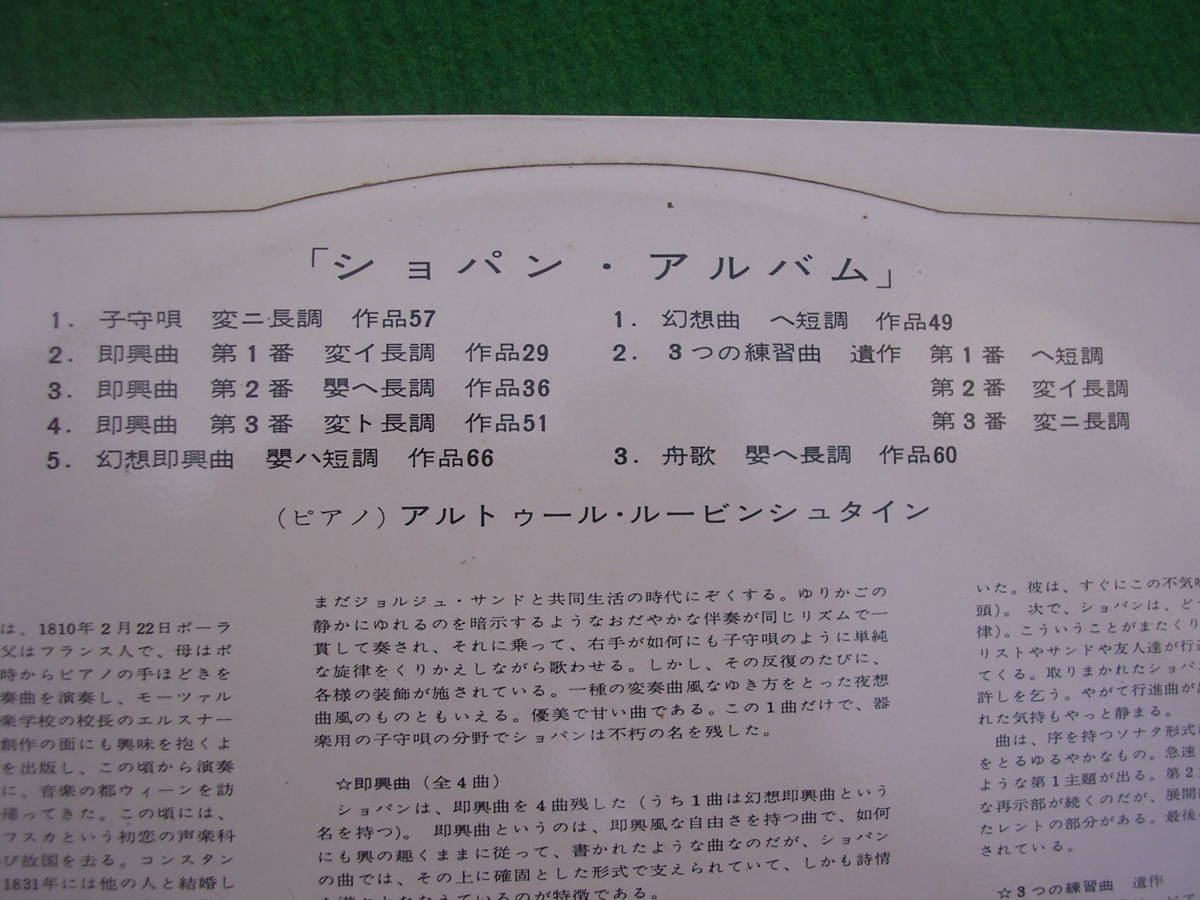 「ショパン・アルバム」
1. 子守唄 変ニ長調 作品57
2. 即興曲 第1番 変イ長調 作品29
3. 即興曲 第2番 嬰ヘ長調 作品36
4. 即興曲 第3番 変ト長調 作品51
5. 幻想即興曲 嬰ハ短調 作品66
1. 幻想曲 ヘ短調 作品49
2. 3つの練習曲 遺作 第1番 ヘ短調
第2番 変イ長調
第3番 変ニ長調
3. 舟歌 嬰ヘ長調 作品60
(ピアノ) アルトゥール・ルービンシュタイン
は、1810年2月22日ポーラ
父はフランス人で、母はポ
時からピアノの手ほどきを
奏曲を演奏し、モーツァル
楽学校の校長のエルスナー
創作の面にも興味を抱くよ
を出版し、この頃から演奏
に、音楽の都ウィーンを訪
帰ってきた。この頃には、
フスカという初恋の声楽科
び故国を去る。コンスタン
1831年には他の人と結婚し
まだジョルジュ・サンドと共同生活の時代にぞくする。ゆりかごの
静かにゆれるのを暗示するようなおだやかな伴奏が同じリズムで一
貫して奏され、それに乗って、右手が如何にも子守唄のように単純
な旋律をくりかえしながら歌わせる。しかし、その反復のたびに、
各様の装飾が施されている。一種の変奏曲風なゆき方をとった夜想
曲風のものともいえる。優美で甘い曲である。この1曲だけで、器
楽用の子守唄の分野でショパンは不朽の名を残した。
☆即興曲（全4曲）
ショパンは、即興曲を4曲残した（うち1曲は幻想即興曲という
名を持つ）。即興曲というのは、即興風な自由さを持つ曲で、如何
にも興の趣くままに従って、書かれたような曲なのだが、ショパン
の曲では、その上に確固とした形式で支えられていて、しかも詩情
いた。彼は、すぐにこの不気味
頭）。次で、ショパンは、ど
律）。こういうことがまたくり
リストやサンドや友人達が行進
てくる。取りまかれたショパ
許しを乞う。やがて行進曲が
れた気持もやっと静まる。
曲は、序を持つソナタ形式
をとるゆるやかなもの。急速
ような第1主題が出る。第2
な再示部が続くのだが、展開
たレントの部分がある。最後
されている。
☆3つの練習曲 遺作